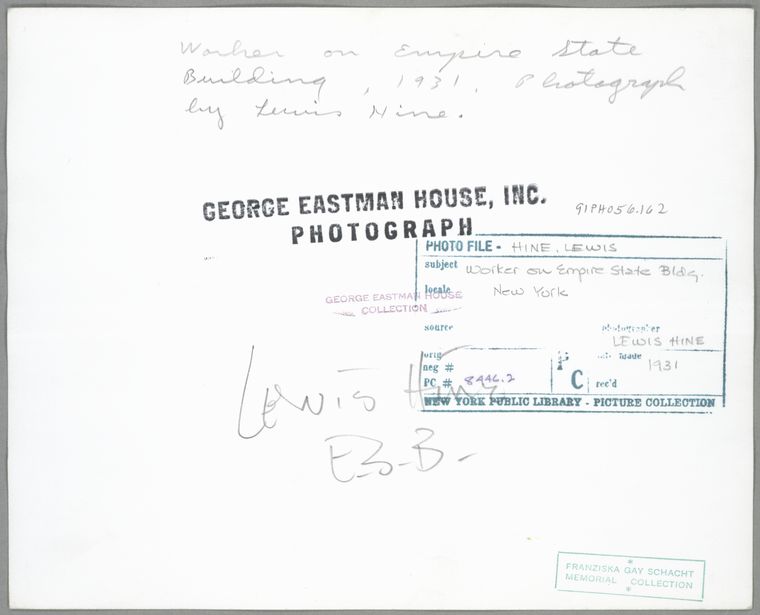 Worker on Empire State
Building, 1931. Photograph
by Lewis Hine.
GEORGE EASTMAN HOUSE, INC.
PHOTOGRAPH
91PH056.162
PHOTO FILE - HINE, LEWIS
subject Worker on Empire State Bldg.
locale New York
GEORGE EASTMAN HOUSE
COLLECTION
source photographer
LEWIS HINE
orig
neg #
made 1931
PC # 8446.2
P
C
rec'd
NEW YORK PUBLIC LIBRARY - PICTURE COLLECTION
Lewis Hine
E.S.B.
FRANZISKA GAY SCHACHT
MEMORIAL COLLECTION